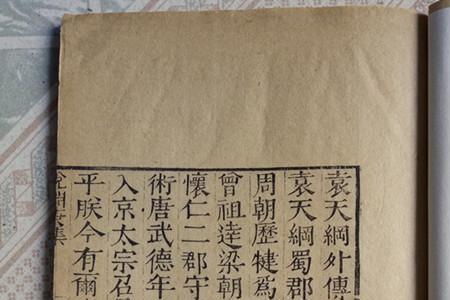 袁天綱外傳
袁天綱蜀郡
周朝歷犍為
曾祖達梁朝
懷仁二郡守
術唐武德年
入京太宗召
平朕今有爾